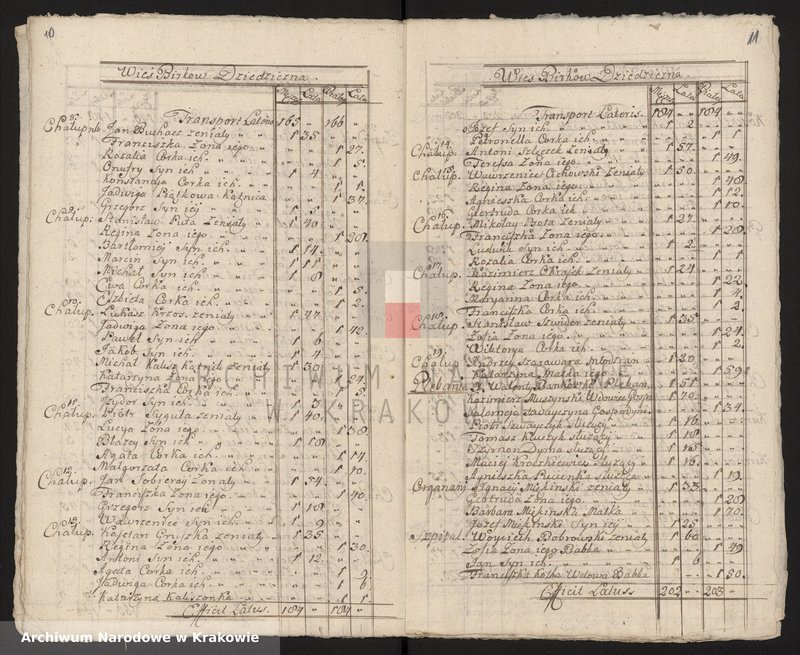 10
Wieś Birkow Dziedziczna.
Męzcz Lata Białog Lata
Transport Lateris 165 „ 166 „
Chalup. Jan Buchacz żeniaty 1 35
Franciszka Zona iego 1 27.
Rozalia Corka ich 1 5.
Onufry Syn ich 1 4
Konstancja Corka ich 1 1.
Jadwiga Komornica 1 37
Grzegorz Syn iey 1 5.
9. Chalup: Stanisław Pita żeniaty 1 40
Regina Zona iego 1 28.
Bartłomiey Syn ich 1 14.
Marcin Syn ich 1 11
Michał Syn ich 1 8
Ewa Corka ich 1 5
Elżbieta Corka ich 1 2.
10. Chalup. Łukasz Krzos żeniaty 1 47
Jadwiga Zona iego 1 42
Paweł Syn ich 1 6
Jakob Syn ich 1 4
Michał Kalisz żeniaty 1 30
Katarzyna Zona iego 1 24
Franciszka Corka ich 1 5
Izydor Syn ich 1 3
11. Chalup. Piotr Syguła żeniaty 1 40
Łucya Zona iego 1 38
Błażey Syn ich 1 18
Agata Corka ich 1 14
Małgorzata Corka ich 1 10.
12. Chalup. Jan Sobieray żonaty 1 54
Franciszka Zona iego 1 40
Grzegorz Syn ich 1 18
Wawrzeniec Syn ich 1 9
13. Chalup. Kajetan Gruszka żeniaty 1 35
Regina Zona iego 1 30.
Antoni Syn ich 1 12.
Agata Corka ich 1 9
Jadwiga Corka ich 1 6
Katarzyna Kaliszonka 1 1.
Efficit Latus. 184 „ 184 „
11
Wieś Birkow Dziedziczna.
Męzcz Lata Białog Lata
Transport Lateris. 184 „ 184 „
Jozef Syn ich 1 2
Petronella Corka ich 1 1
14. Chalup. Antoni Szlęzek żeniaty 1 57
Teressa Zona iego 1 49.
15. Chalup. Wawrzeniec Cichowski żeniaty 1 50
Regina Zona iego 1 48
Agnieszka Corka ich 1 12.
Giertruda Corka ich 1 10.
16. Chalup. Mikołay Psota żeniaty 1 27
Franciszka Zona iego 1 28
Ludwik Syn ich 1 2
Rozalia Corka ich 1 1
17. Chalup. Kazimierz Okrajek żeniaty 1 24
Regina Zona iego 1 22
Maryanna Corka ich 1 4
Franciszka Corka ich 1 2.
18. Chalup. Stanisław Szwider żeniaty 1 35
Zofia Zona iego 1 24.
Wiktorya Corka ich 1 2.
19. Chalup. Andrzey Szarawara Młodzian 1 20
Katarzyna Matka iego 1 59
Plebania X. Walenty Bankowski Pleban 1 51
Kazimierz Muszyński Wdowiec 1 70
Salomeja Gospodyni 1 34.
Piotr służący 1 16
Tomasz Kluzyk służący 1 18
Szymon Dyma służący 1 15
Maciey służący 1 16.
Agnieszka służąca 1 19
Organary Ignacy Miękinski żeniaty 1 33
Gertruda Zona iego 1 28
Barbara Miękinska Matka 1 70.
Jozef Miękinski Syn iey 1 25
Szpital. Woyciech Dobrowolski żeniaty 1 60
Zofia Zona iego Babka 1 49
Jan Syn ich 1 6
Franciszka Wdowa Babka 1 50.
Efficit Latus 202 „ 203 „
ARCHIWUM NARODOWE
W KRAKOWIE
Archiwum Narodowe w Krakowie